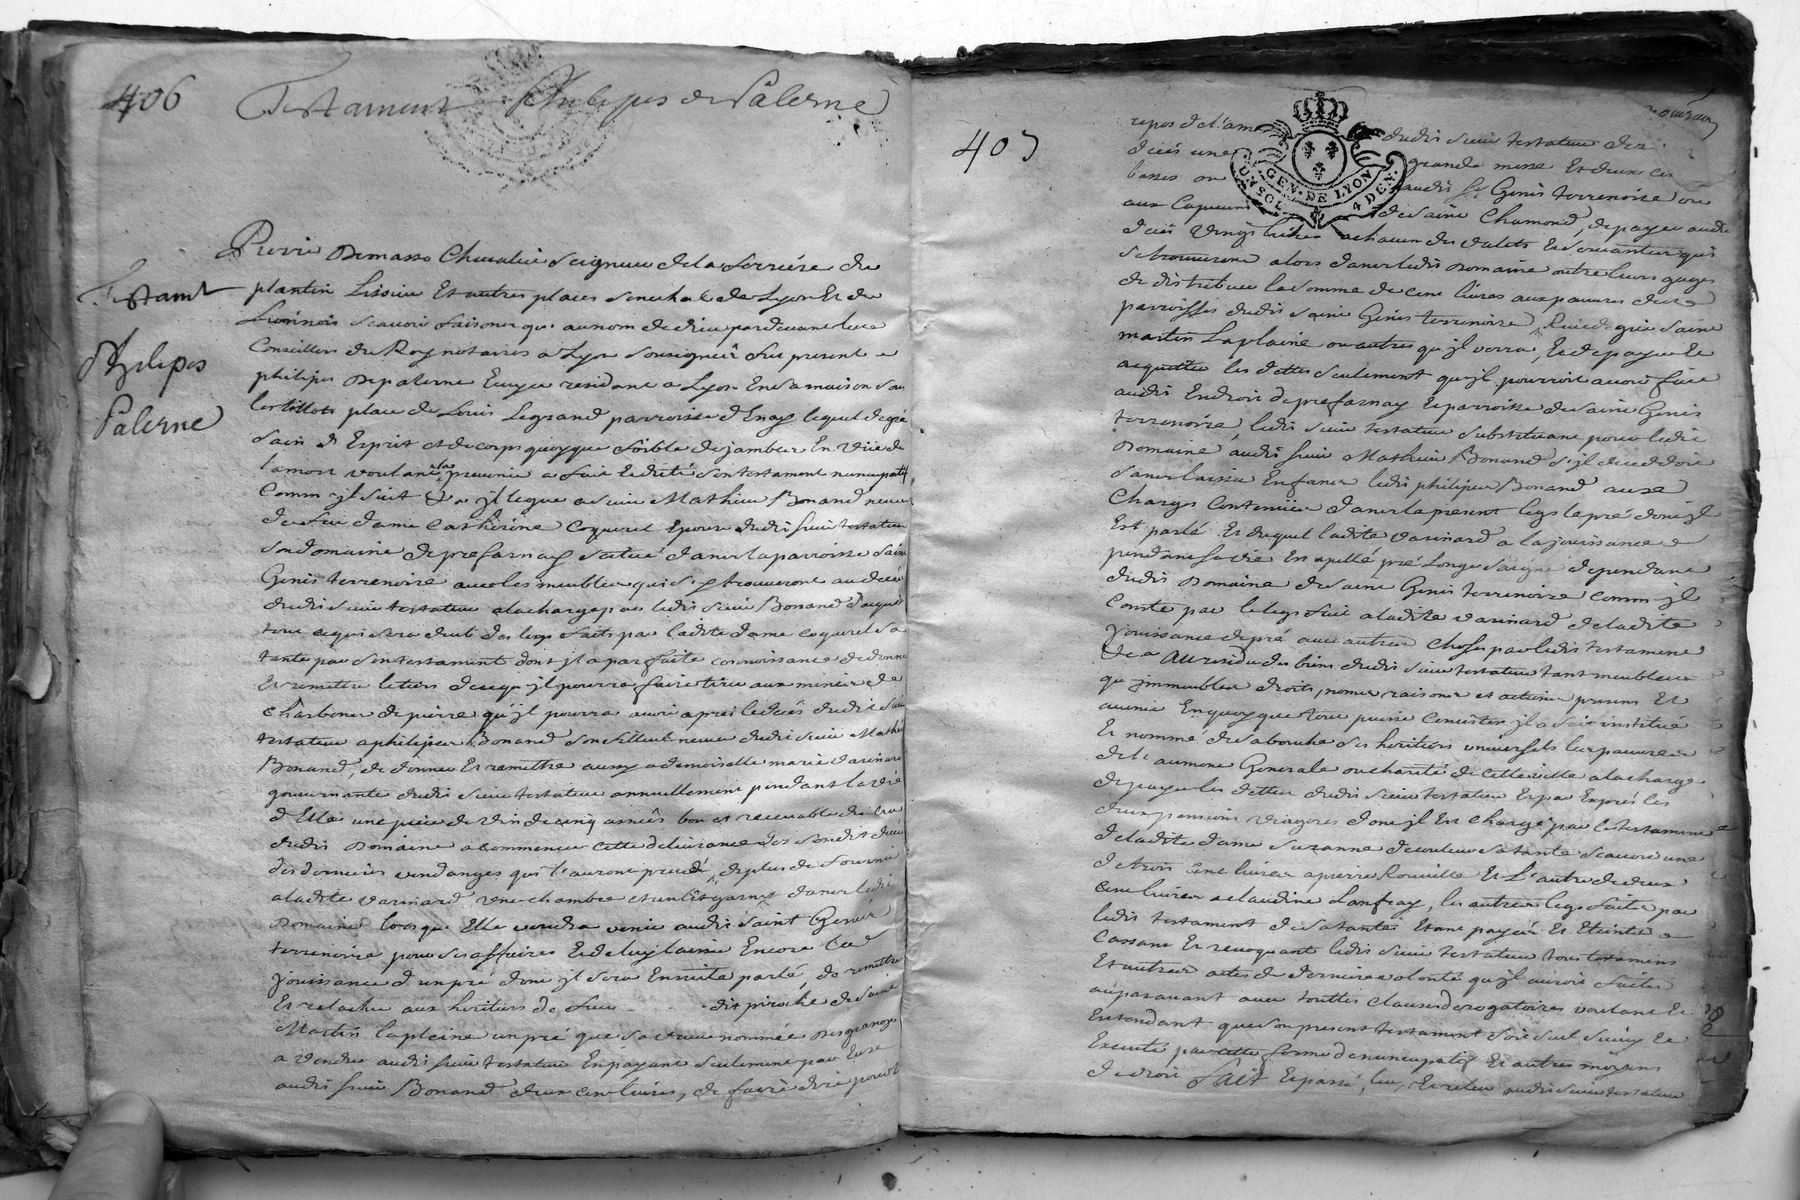 406
Testament Philipes de Palerne
Testamt
Philipes
Palerne
Pierre Demasso Chevalier Seigneur de la Ferriére du
plantin Lissieu Et autres places Senechal de Lyon Et du
Lionnois scavoir faisons que au nom de dieu pardevant les
Conseillers du Roy notaires a Lyon soussignés fut present
philipes De palerne Ecuyer residant a Lyon En sa maison sous
les tillots place de Louis Legrand parroisse d'Enay lequel de gré
sain d'Esprit et de corps quoyque foible de jambes En vüe de
la mort voulant la prevenir a fait Redité son testament nuncupatif
Comm jl suit jl legue a sieur Mathieu Bonand neveu
de feu dame Catherine Coquerel Epouse dudit sieur testateur
son domaine de prefarnay situé dans la parroisse saint
Genis terrenoire avec les meubles qui s'y trouveront au decés
dudit sieur testateur a la charge par ledit sieur Bonand d'acquitter
tout ce qui sera deub des legs faits par ladite dame coquerel sa
tante par son testament dont jl a parfaite connoissance de donner
Et remettre le tiers de ce qu'jl pourra faire tirer aux miniers de
charbons de pierre qu'jl pourra avoir apres le decés dudit sieur
testateur a philipes Bonand son filleul neveu dudit sieur Mathieu
Bonand, de donner Et remettre aussy a demoiselle marie varinard
gouvernante dudit sieur testateur annuellement pendant la vie
d'Elle une piece de vin de cinq annés bon et recevable du cru
dudit Domaine a commencer cette delivrance des son dit decés
des dernieres vendanges qui l'auront precedé, de plus de fournir
a ladite varinard une chambre et un lit garny dans ledit
Domaine lorsque Elle voudra venir audit saint Genis
terrenoire pour ses affaires Et de luy laisser Encore la
jouissance d'un pré dont jl sera Ensuite parlé, de remettre
Et relacher aux heritiers de feu - - - dit piroche de saint
Martin la plaine un pré que sa veuve nommée Desgranges
a vendu audit sieur testateur En payant seulement par Eux
audit sieur Bonand deux cent livres, de faire dire pour le
407
repos de l'ame dudit sieur testateur des
decés une grande messe Et deux cent
basses ou audit St Genis terrenoire ou
aux Capucins de saint Chamond, de payer audit
decés vingt livres a chacun des valets Et servantes qui
se trouveront alors dans ledit Domaine outre leurs gages
de distribuer la somme de cent livres aux pauvres des
parroisses dudit saint Genis terrenoire, Rivedegier saint
martin Laplaine ou autres qu'jl verra, Et de payer Et
acquitter les dettes seulement qu'jl pourroit avoir fait
audit Endroit de prefarnay Et parroisse de saint Genis
terrenoire, ledit sieur testateur substituant pour ledit
Domaine audit sieur Mathieu Bonand s'jl decedoit
sans laisser Enfans ledit philipes Bonand aux
Charges Contenües dans la present legs le pré dont jl
Est parlé Et duquel ladite varinard a la jouissance
pendant sa vie Est apellé pré Longe Saigne dependant
dudit Domaine de saint Genis terrenoire comm jl
Conste par le legs fait a ladite varinard de ladite
jouissance de pré avec autres choses par ledit testament
Au residu des biens dudit sieur testateur tant meubles
qu'jmmeubles droits, noms, raisons et actions presens Et
avenir En quoy que tout puisse Consister jl a fait institué
Et nommé de sa bouche ses heritiers universels les pauvres
de l'aumone Generale ou charité de cette ville a la charge
de payer les dettes dudit sieur testateur Et par Exprés les
deux pensions viageres dont jl Est chargé par le testament
de ladite dame Suzanne de couleur sa tante scavoir une
de trois cent livres a pierre Rouville Et L'autre de deux
cent livres a claudine Lanfray, les autres legs faits par
ledit testament de sa tante Etant payés Et Eteints
Cassant Et revoquant ledit sieur testateur tous testamens
Et autres actes de derniere volonté qu'jl auroit faits
auparavant avec touttes clauses derogatoires voulant Et
Entendant que son present testament soit seul suivy Et
Executé par cette forme de nuncupatif Et autres moyens
de droit Fait Et passé, lu, Et relu audit sieur testateur
GEN. DE LYON
UN SOL 4 DEN.